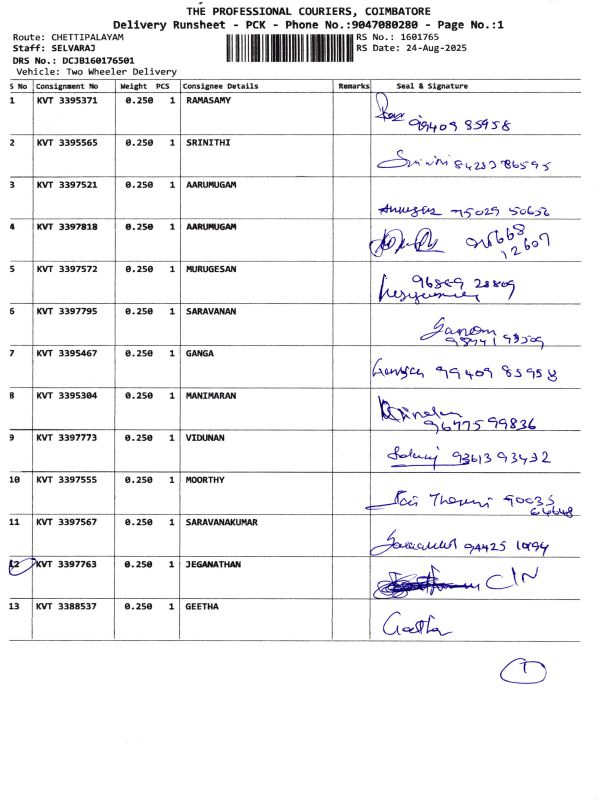 THE PROFESSIONAL COURIERS, COIMBATORE
Delivery Runsheet - PCK - Phone No.:9047080280 - Page No.:1
Route: CHETTIPALAYAM
RS No.: 1601765
Staff: SELVARAJ
RS Date: 24-Aug-2025
DRS No.: DCJB160176501
Vehicle: Two Wheeler Delivery
S No Consignment No Weight PCS Consignee Details Remarks Seal & Signature
1 KVT 3395371 0.250 1 RAMASAMY
99409 85958
2 KVT 3395565 0.250 1 SRINITHI
3 KVT 3397521 0.250 1 AARUMUGAM
75029 50656
4 KVT 3397818 0.250 1 AARUMUGAM
12607
5 KVT 3397572 0.250 1 MURUGESAN
6 KVT 3397795 0.250 1 SARAVANAN
7 KVT 3395467 0.250 1 GANGA
99409 85958
8 KVT 3395304 0.250 1 MANIMARAN
96775 99836
9 KVT 3397773 0.250 1 VIDUNAN
93613 93432
10 KVT 3397555 0.250 1 MOORTHY
11 KVT 3397567 0.250 1 SARAVANAKUMAR
94425 10194
12 KVT 3397763 0.250 1 JEGANATHAN
C/N
13 KVT 3388537 0.250 1 GEETHA
Geetha
1